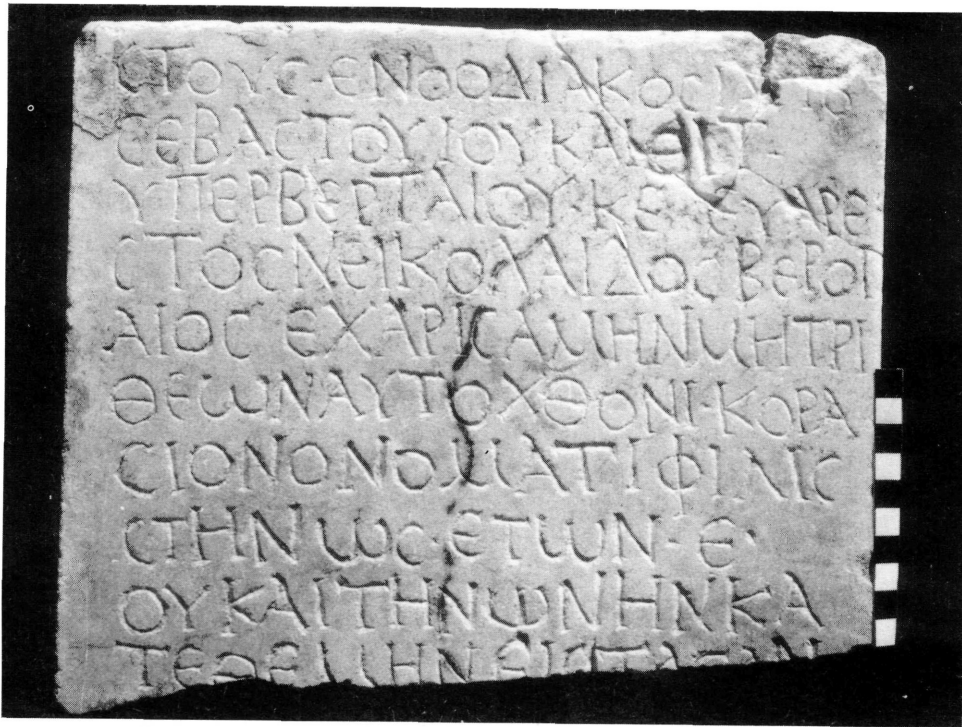 ЄΤΟΥϹ·ЄΝΟΟΔΙΑΚΟϹ
ϹЄΒΑϹΤΟΥΤΟΥΚΑΙ
ΥΠЄΡΒЄΡΤΑΙΟΥ·ΚЄ·ЄΥΑΡЄ
ϹΤΟϹΝЄΙΚΟΛΑΙΔΟϹΒЄΡΟΙ
ΑΙΟϹ ЄΧΑΡΙϹΑΜΗΝΜΗΤΡΙ
ΘЄΩΝΑΥΤΟΧΘΟΝΙ·ΚΟΡΑ
ϹΙΟΝΟΝΟΜΑΤΙΦΙΛΙϹ
ϹΤΗΝΩϹ·ЄΤΩΝ·Є·
ΟΥΚΑΙΤΗΝΩΝΗΝΚΑ
ΤЄΘЄΜΗΝ